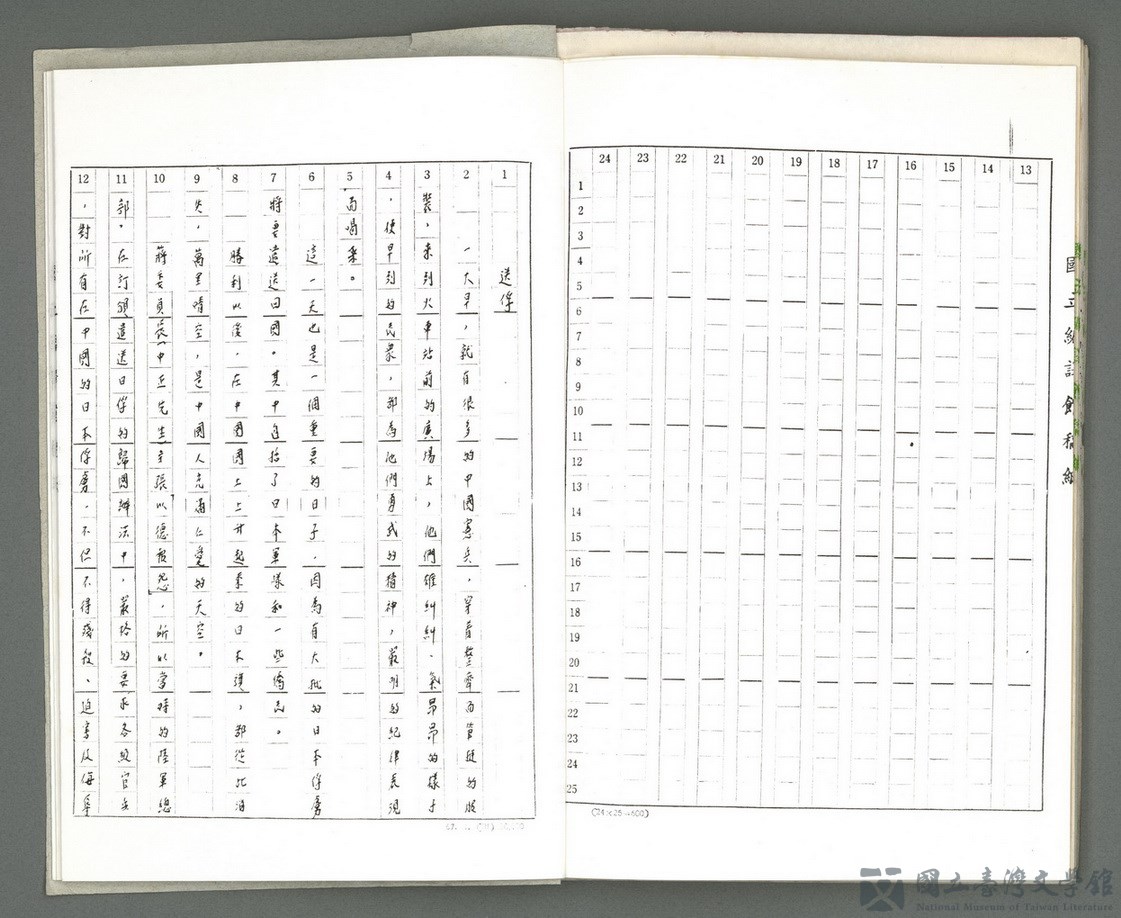 國立編譯館稿紙
13 14 15 16 17 18 19 20 21 22 23 24
1 2 3 4 5 6 7 8 9 10 11 12 13 14 15 16 17 18 19 20 21 22 23 24 25
(24×25=600)
1 2 3 4 5 6 7 8 9 10 11 12
送俘
一大早，就有很多的中國憲兵，穿着整齊而筆挺的服
裝，來到火車站前的廣場上，他們雄糾糾、氣昂昂的樣子
，使早到的民眾，都為他們勇武的精神，嚴明的紀律表現
而喝采。
這一天也是一個重要的日子，因為有大批的日本俘虜
將要遣送回國。其中包括了日本軍眷和一些僑民。
勝利以後，在中國國土上升起來的日本旗，都從此消
失，萬里晴空，是中國人充滿仁愛的天空。
蔣委員長中正先生主張以德報怨，所以當時的陸軍總
部，在訂頒遣送日俘的歸國辦法中，嚴格的要求各級官兵
，對所有在中國的日本俘虜，不但不得殘殺、迫害及侮辱
國立臺灣文學館
National Museum of Taiwan Literature